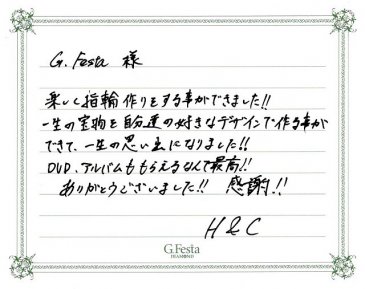 G. Festa 様
楽しく指輪作りをする事ができました!!
一生の宝物を自分達の好きなデザインで作る事が
できて、一生の思い出になりました!!
DVD、アルバムももらえるなんて最高!!
ありがとうございました!! 感謝!!
H & C
G.Festa
DIAMOND